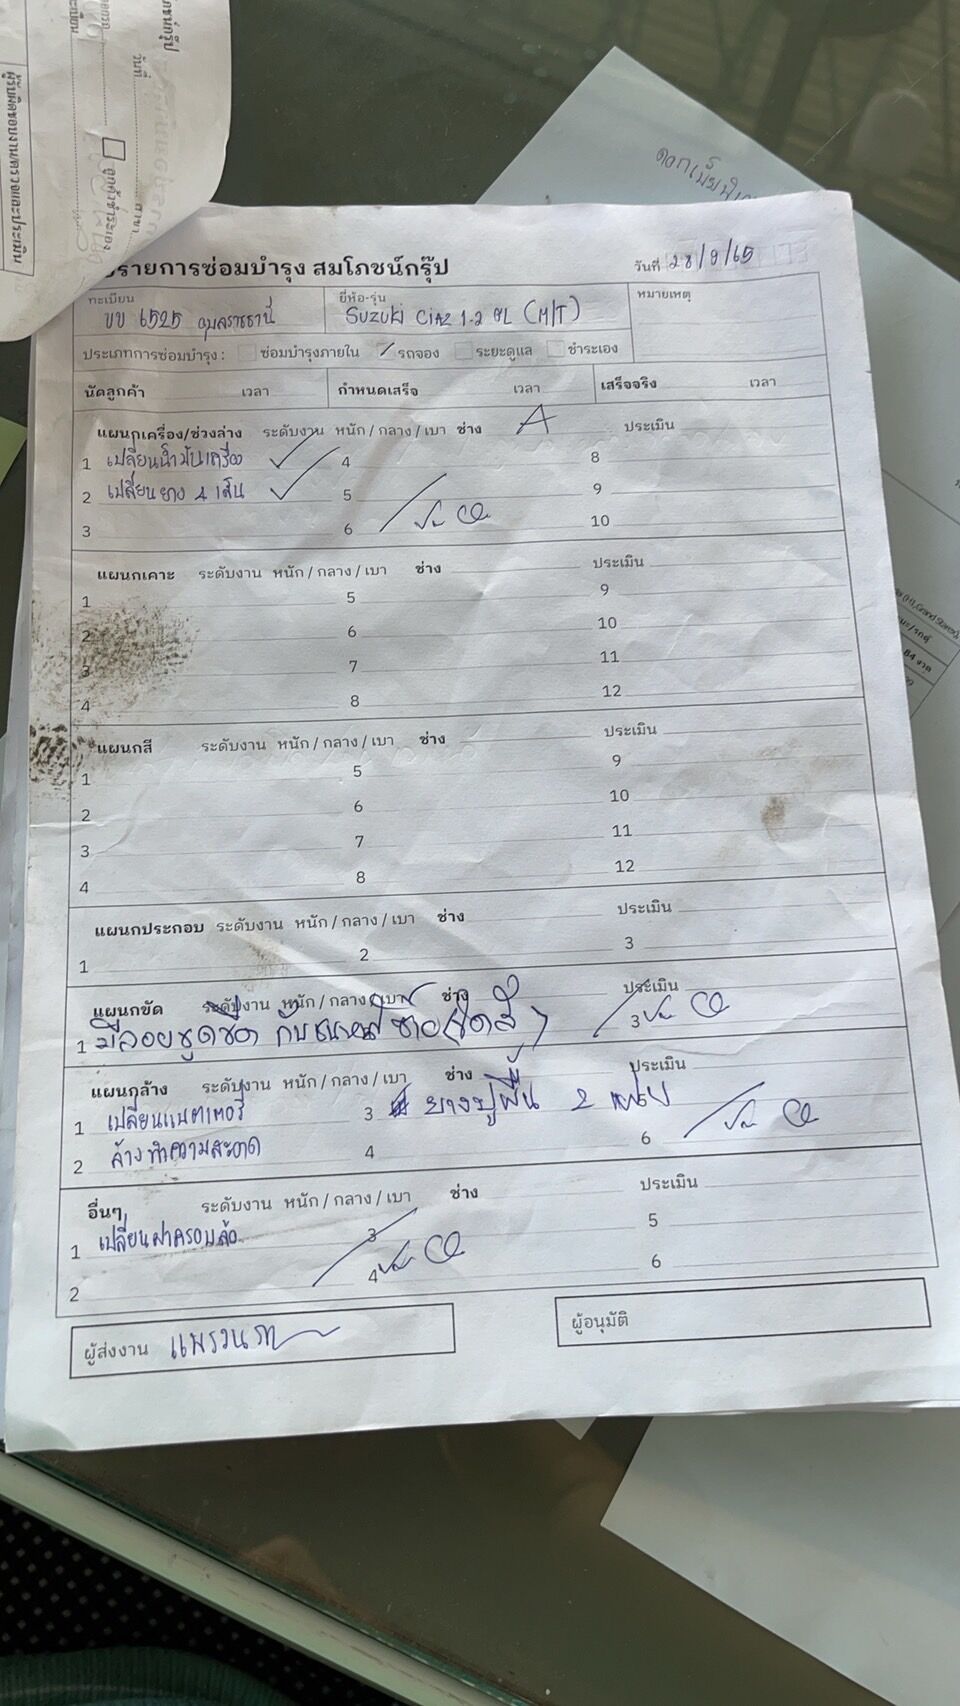 รายการซ่อมบำรุง สมโภชน์กรุ๊ป
วันที่ 28/9/65
ทะเบียน ขข 6525 อุบลราชธานี
ยี่ห้อ-รุ่น Suzuki Ciaz 1.2 GL (M/T)
หมายเหตุ
ประเภทการซ่อมบำรุง : ซ่อมบำรุงภายใน / รถจอง ระยะดูแล ชำระเอง
นัดลูกค้า เวลา กำหนดเสร็จ เวลา เสร็จจริง เวลา
แผนกเครื่อง/ช่วงล่าง ระดับงาน หนัก / กลาง / เบา ช่าง A ประเมิน
1 เปลี่ยนน้ำมันเครื่อง ✓ 4 8
2 เปลี่ยนยาง 4 เส้น ✓ 5 9
3 6 10
แผนกเคาะ ระดับงาน หนัก / กลาง / เบา ช่าง ประเมิน
1 5 9
2 6 10
3 7 11
4 8 12
แผนกสี ระดับงาน หนัก / กลาง / เบา ช่าง ประเมิน
1 5 9
2 6 10
3 7 11
4 8 12
แผนกประกอบ ระดับงาน หนัก / กลาง / เบา ช่าง ประเมิน
1 2 3
แผนกขัด ระดับงาน หนัก / กลาง / เบา ช่าง ประเมิน
1 มีรอยขูดขีด กันชนหน้าซ้าย (ขัดสี) 3
แผนกล้าง ระดับงาน หนัก / กลาง / เบา ช่าง ประเมิน
1 เปลี่ยนแบตเตอรี่ 3 ยางปูพื้น 2 แผ่น
2 ล้างทำความสะอาด 4 6
อื่นๆ ระดับงาน หนัก / กลาง / เบา ช่าง ประเมิน
1 เปลี่ยนฝาครอบล้อ 3 5
2 4 6
ผู้ส่งงาน
ผู้อนุมัติ